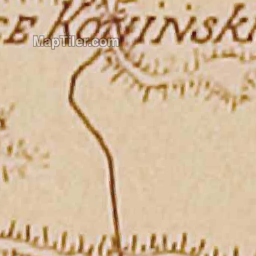 SE KOMINSKI
MapTiler.com